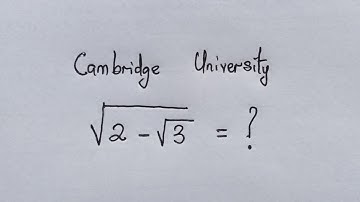 Cambridge University
√(2 - √3) = ?